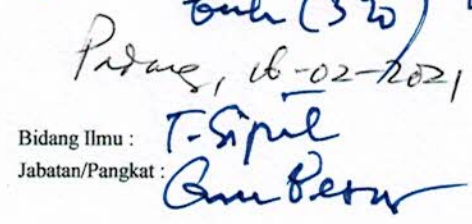 Baik (320)
Padang, 16-02-2021
Bidang Ilmu : T. Sipil
Jabatan/Pangkat : Guru Besar